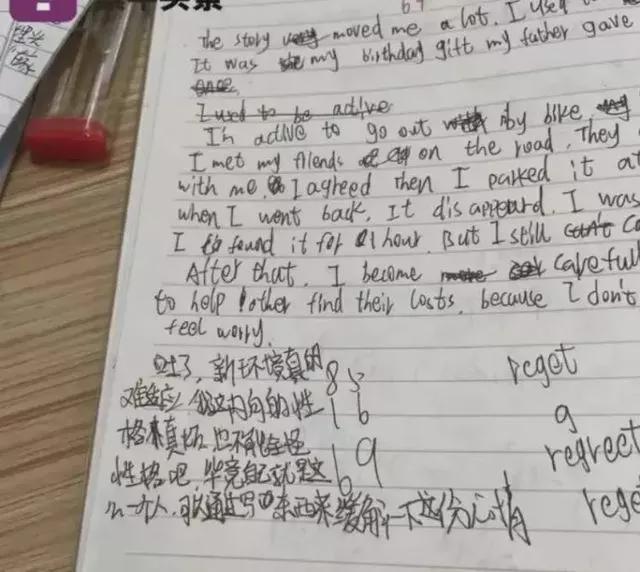 the story moved me a lot. I used
It was my birthday gift my father gave
I used to be active
I'm active to go out by bike,
I met my friends on the road. They
with me. I agreed then I parked it at
when I went back. It disappeard. I was
I found it for 1 hour. But I still
After that. I become carefull
to help other find their losts. because I don't
feel worry.
吐了，新环境真的
85
reget
难适应 内向的性
16
9
格 真 也不能全怪
regrect
性格吧，毕竟自己就是这
69
么一个人，我通过写 东西来缓解一下这份心情
rege